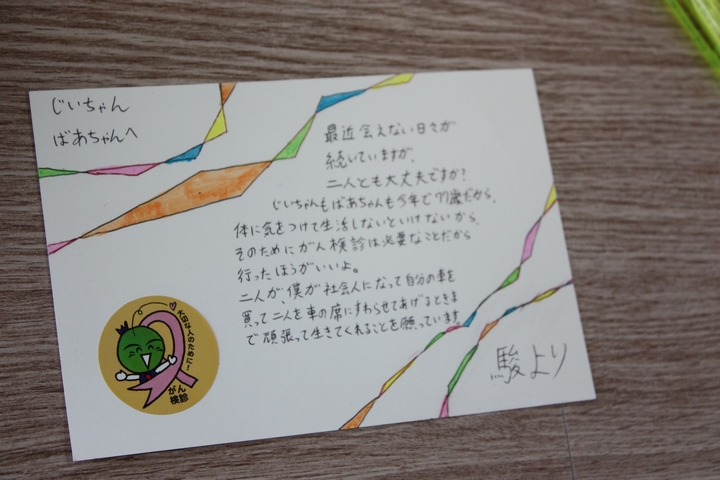 じいちゃん
ばあちゃんへ
最近会えない日々が
続いていますが、
二人とも大丈夫ですか?
じいちゃんもばあちゃんも今年で77歳だから、
体に気をつけて生活しないといけないから、
そのためにがん検診は必要なことだから
行ったほうがいいよ。
二人が、僕が社会人になって自分の車を
買って二人を車の席にすわらせてあげるときま
で頑張って生きてくれることを願っています
駿より
大切な人のために!
がん
検診